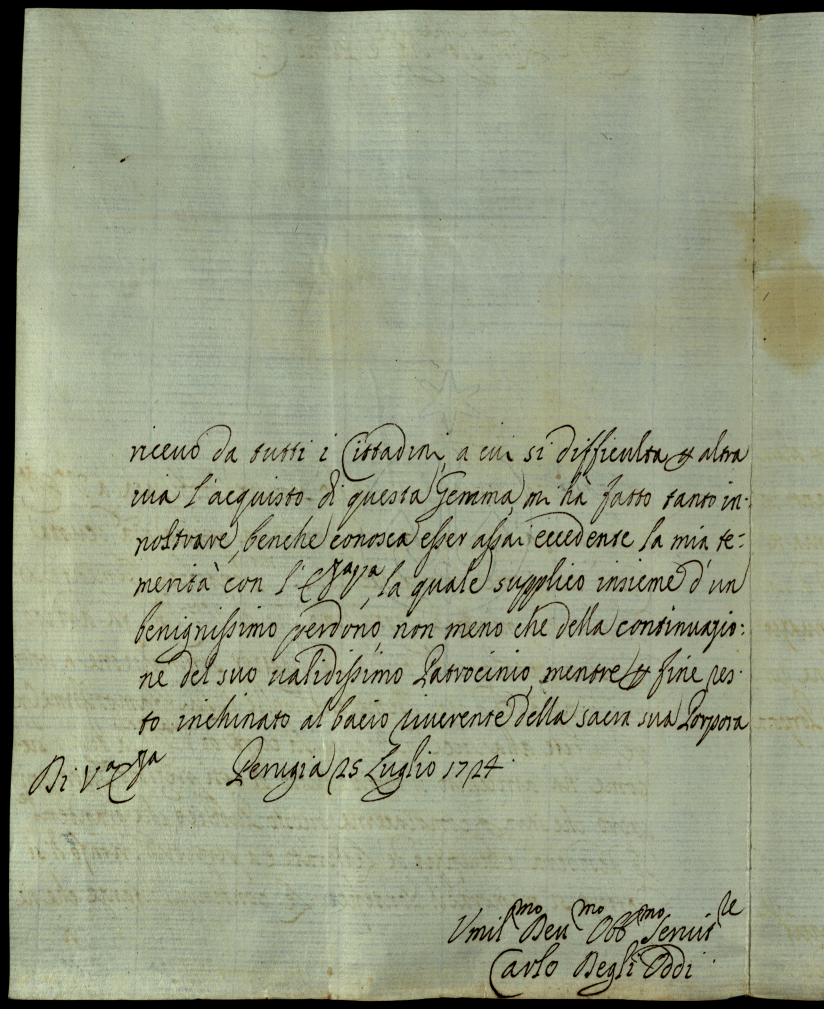 riceuo da tutti i Cittadini, a cui si difficulta p altra
uia l'acquisto di questa Gemma, mi hà fatto tanto in-
noltrare, benche conosca esser assai eccedente la mia te=
merità con l'Eza Va, la quale supplico insieme d'un
benignissimo perdono, non meno che della continuazio:
ne del suo validissimo Patrocinio, mentre p fine res-
to inchinato al bacio riuerente della sacra sua Porpora
Di Va Eza Perugia 25 Luglio 1724.
Vmilmo Deumo Obbmo Seruitre
Carlo Degli Oddi